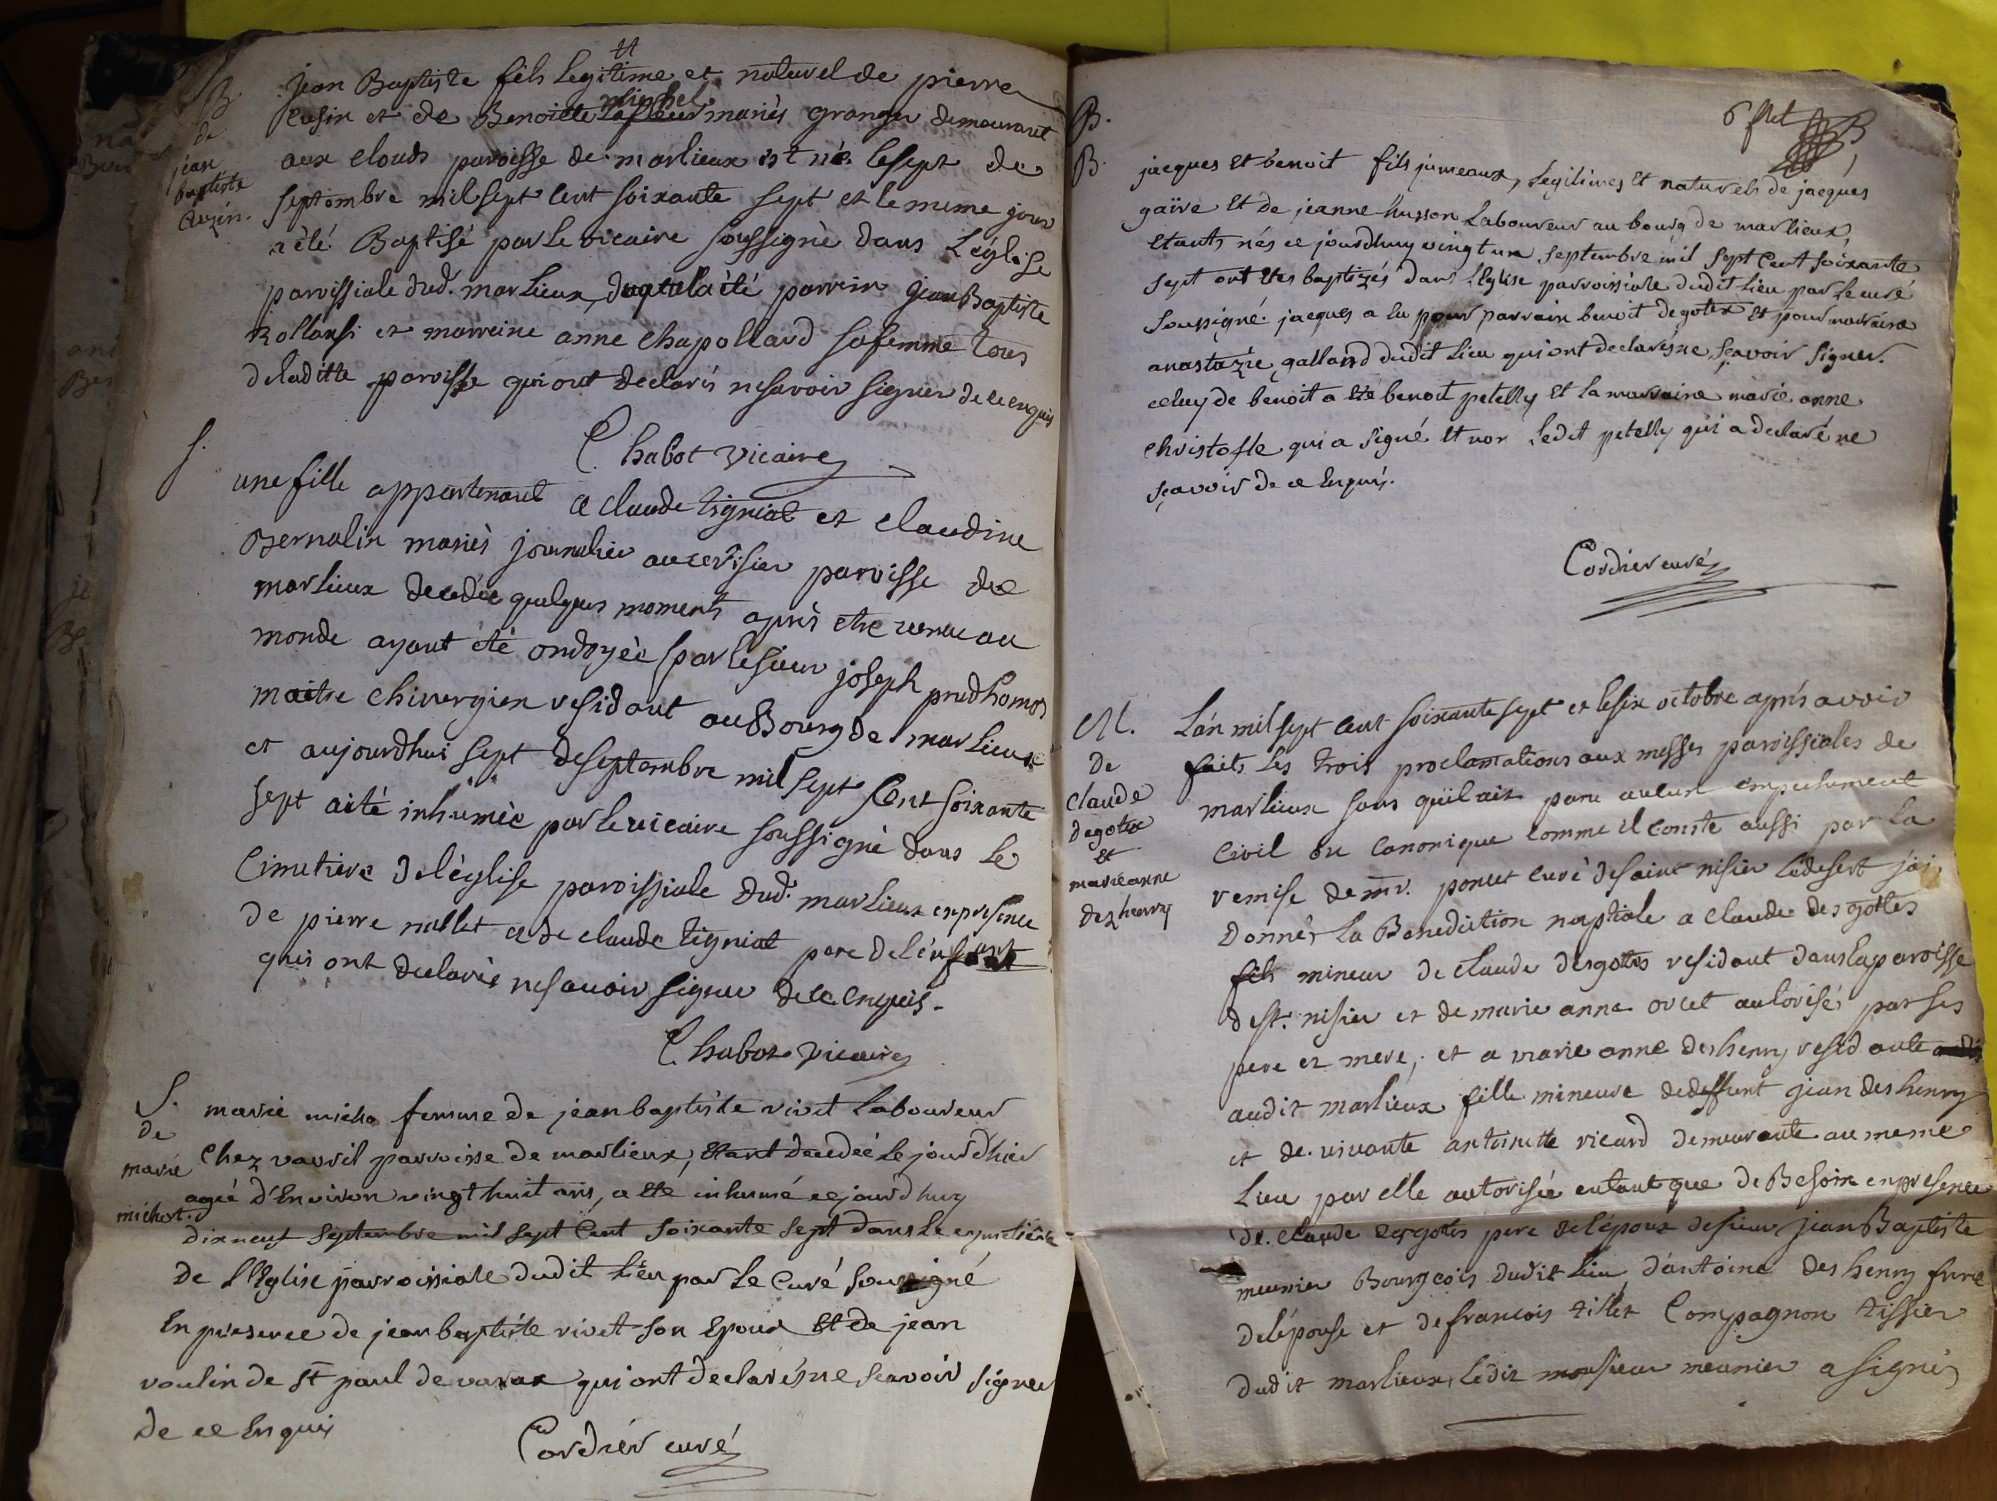 B.
de
jean
baptiste
Cuzin.
jean Baptiste fils legitime et naturel de pierre
Cusin et de Benoitte michel mariés granger demeurant
aux clouds paroisse de marlieux est né le sept de
septembre mil sept cent soixante sept et le meme jour
a été Baptisé par le vicaire soussigné dans L'église
paroissiale dud. marlieux, duquel a été parrein jean Baptiste
Rollansi et marreine anne chapollard sa femme tous
de laditte paroisse qui ont declarés ne savoir signer de ce enquis
Chabot vicaire
S.
une fille appartenant a claude tigniat et claudine
Bernalin mariés journalier au cerisier paroisse de
marlieux decedée quelques moments après etre venue au
monde ayant été ondoyée par le sieur joseph prudhomos
maitre chirurgien residant au Bourg de marlieux
et aujourdhui sept de septembre mil sept Cent soixante
sept a été inhumée par le vicaire soussigné dans le
Cimetiere de l'église paroissiale dud. marlieux en presence
de pierre nallet et de claude tigniat pere de l'enfant
qui ont declarés ne savoir signer de ce enquis.
Chabot vicaire
S.
de
marie
michot.
marie micho femme de jean baptiste rivet Laboureur
chez vavril parroisse de marlieux, étant decedée le jour d'hier
agée d'Environ vingt huit ans, a été inhumé ce jourd'huy
dix neuf septembre mil sept Cent soixante sept dans le cymetière
de l'Eglise parroissiale dudit lieu par le Curé soussigné
En présence de jean baptiste rivet son Epoux Et de jean
voulin de st paul de varax qui ont declarés ne scavoir signer
de ce Enquis
Cordier curé
6 flet
B.
B.
jacques Et benoit fils jumeaux, legitimes Et naturels de jacques
gaïve Et de jeanne husson Laboureur au bourg de marlieux
étants nés ce jourdhuy vingt un septembre mil sept Cent soixante
sept ont Etes baptizés dans L'Eglise parroissiale dudit Lieu par Le curé
soussigné. jacques a Eu pour parrain benoit degotex Et pour marraine
anastazie galland dudit Lieu qui ont declarés ne sçavoir signer.
celuy de benoit a été benoit petelly Et La marraine marie anne
christofle qui a signé Et non Ledit petelly qui a declaré ne
sçavoir de ce Enquis.
Cordier curé
M.
de
claude
degotex
et
marie anne
dezhenry
L'an mil sept cent soixante sept et le six octobre après avoir
faits Les trois proclamations aux messes paroissiales de
marlieux sans qu'il ait paru aucun empechement
Civil ou Canonique comme il conste aussi par La
remise de mr. poncet curé de saint nisier Ledesert j'ai
Donnés La Benediction nuptiale a claude desgottes
fils mineur de claude desgottes residant dans la paroisse
de st. nisier et de marie anne orcet autorisé par ses
pere et mere, et a marie anne deshenry residante
audit marlieux fille mineure de deffunt jean deshenry
et de vivante antoinette ricard demeurante au meme
Lieu par elle autorisée en tant que de Besoin en presence
de claude desgottes pere de l'époux de sieur jean Baptiste
meunier Bourgeois dudit Lieu, d'antoine deshenry frere
de l'épouse et de francois tillet Compagnon tissier
dudit marlieux, Ledit monsieur meunier a signés